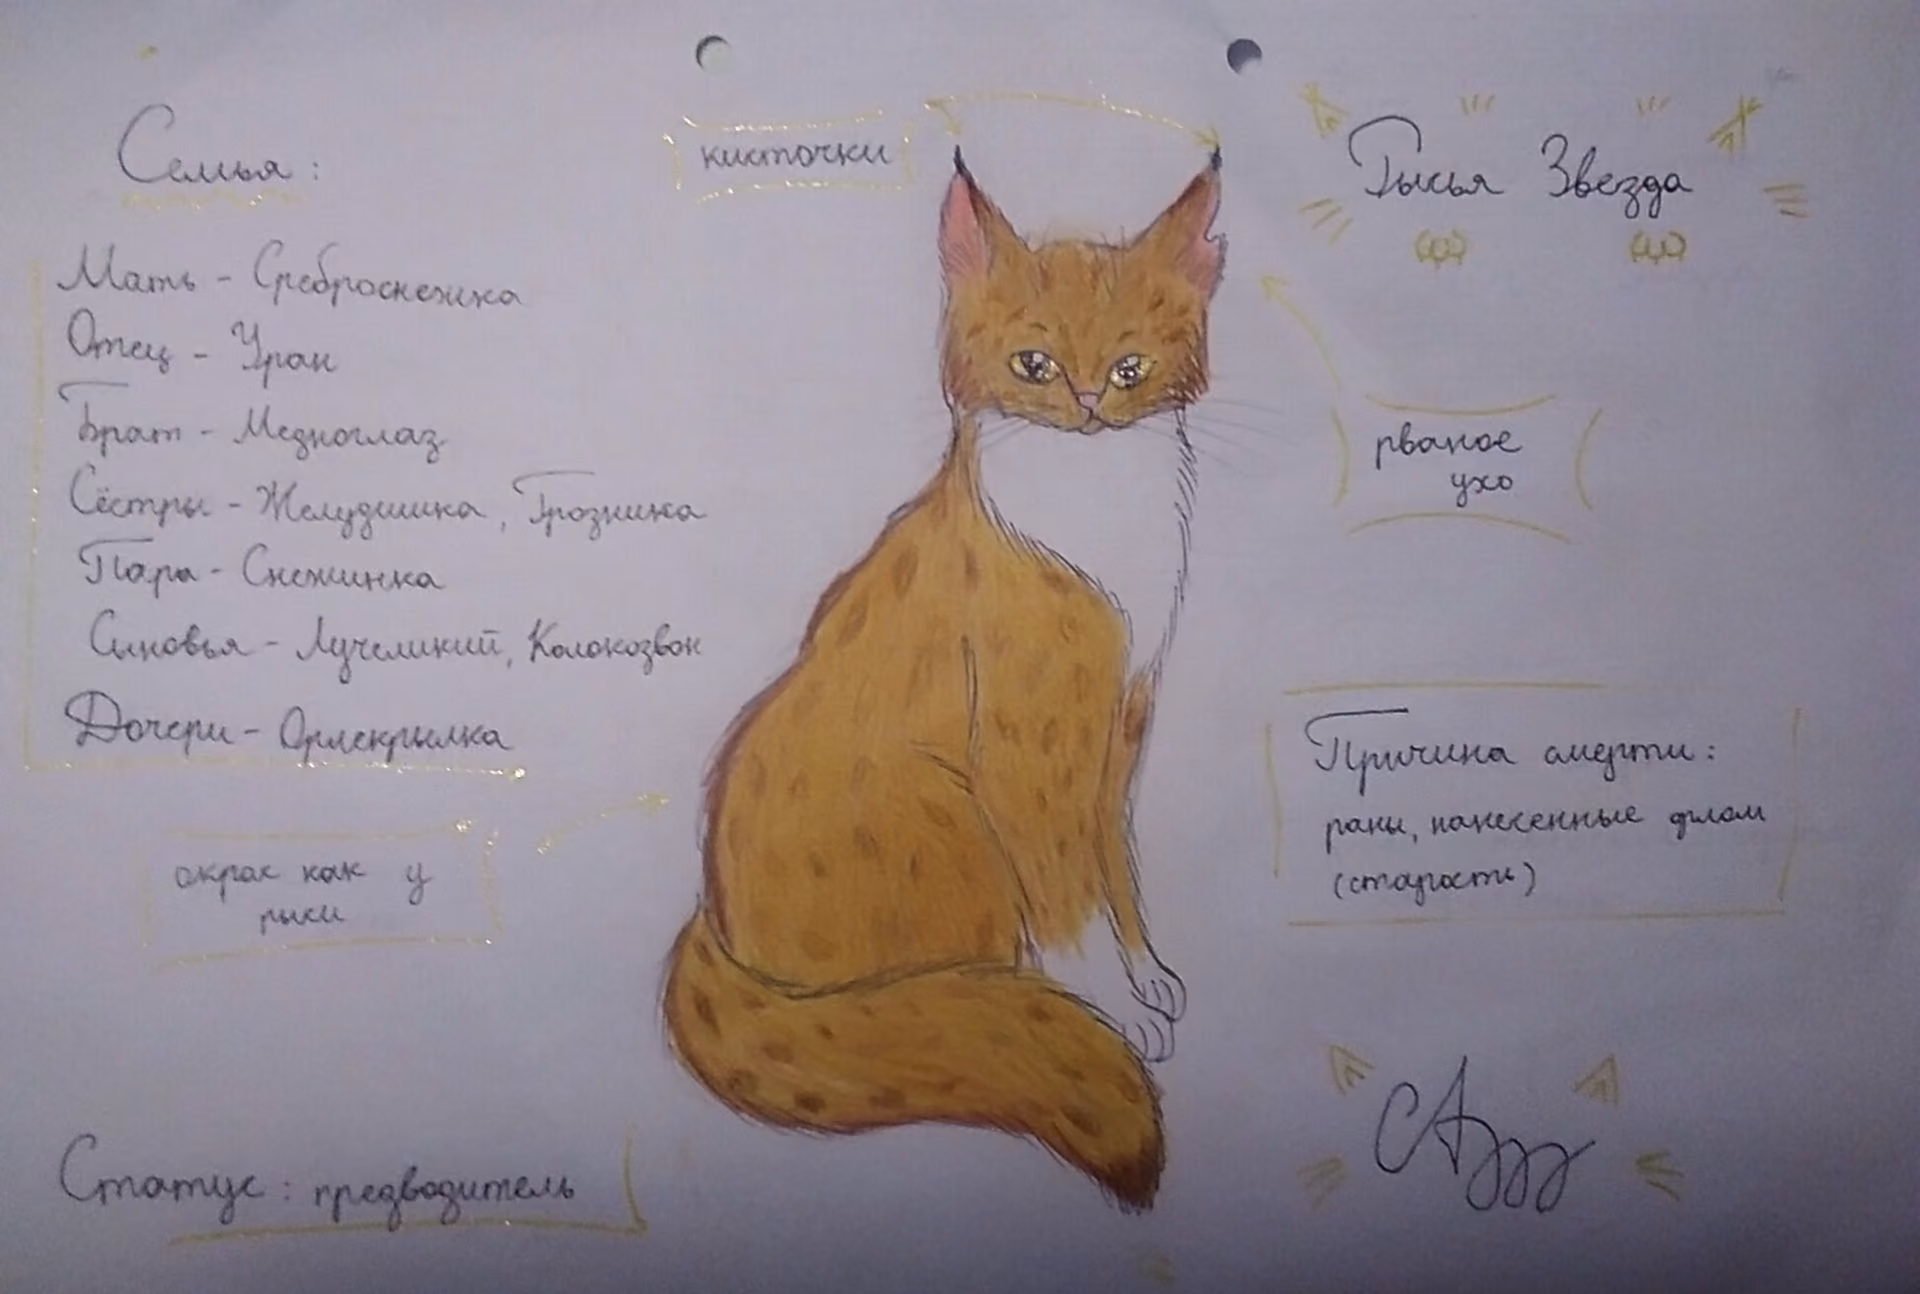 Семья:
кисточки
Рысья Звезда
Мать - Среброснежка
Отец - Уран
Брат - Медноглаз
Сёстры - Желудишка,
Пара - Снежинка
Сыновья - Лучеликий, Колокозвон
Дочери - Орлекрылка
рваное
ухо
окрас как у
рыси
Причина смерти:
раны, нанесенные
(старость)
Статус: предводитель